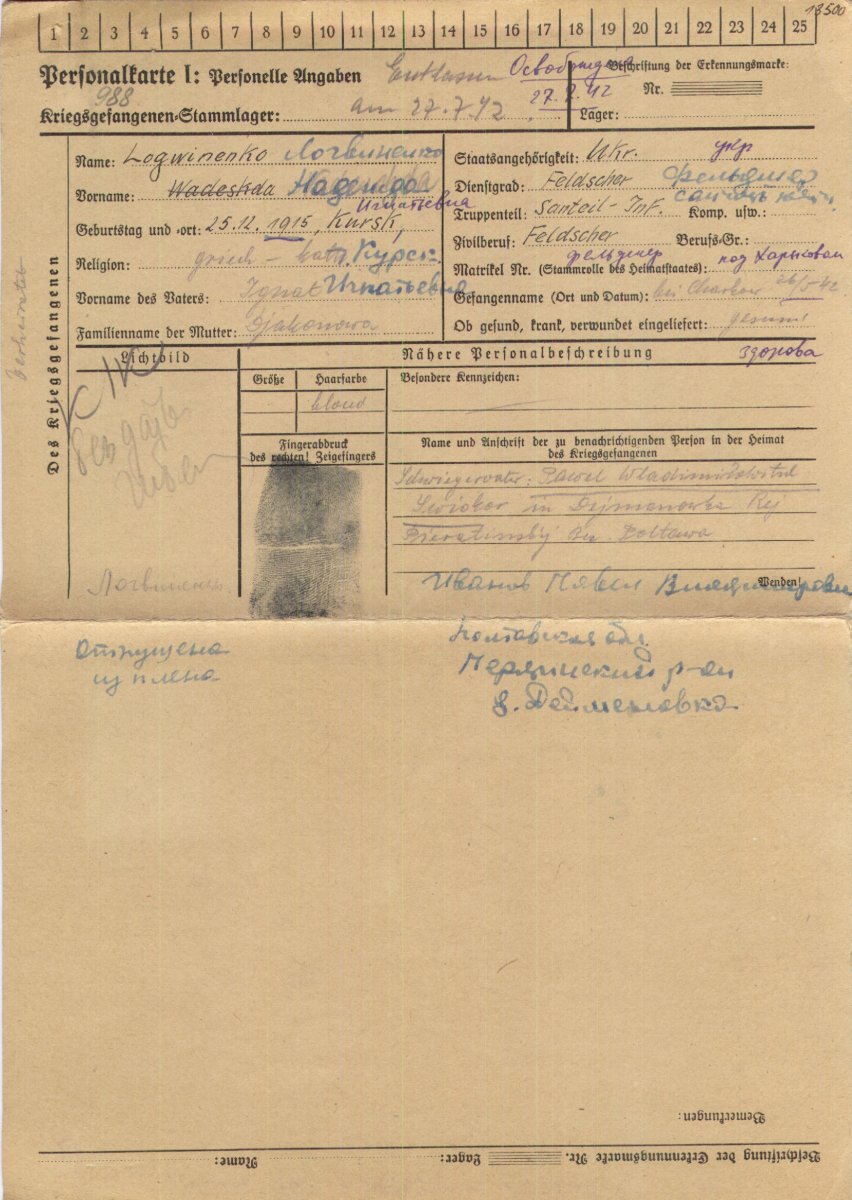 18500
1 2 3 4 5 6 7 8 9 10 11 12 13 14 15 16 17 18 19 20 21 22 23 24 25
Personalkarte I: Personelle Angaben
Entlassen Освобождена
988
am 27.7.42 27.7.42
Kriegsgefangenen-Stammlager:
Beschriftung der Erkennungsmarke:
Nr.
Lager:
Des Kriegsgefangenen
verheiratet
Name: Logwinenko Логвиненко
Vorname: Wadeskda Надежда
Игнатьевна
Geburtstag und -ort: 25.12.1915, Kursk,
Religion: griech-kath. Курск.
Vorname des Vaters: Ignat Игнатьевна
Familienname der Mutter: Djakonowa
Staatsangehörigkeit: Ukr. укр
Dienstgrad: Feldscher Фельдшер
Truppenteil: Santeil-Inf. Komp. usw.:
Zivilberuf: Feldscher Berufs-Gr.:
фельдшер
Matrikel Nr. (Stammrolle des Heimatstaates): под Харьковом
Gefangenname (Ort und Datum): bei Charkow 26/5 42
Ob gesund, krank, verwundet eingeliefert: gesund
здорова
Lichtbild
Nähere Personalbeschreibung
Größe
Haarfarbe
blond
Besondere Kennzeichen:
Fingerabdruck
des rechten! Zeigefingers
Name und Anschrift der zu benachrichtigenden Person in der Heimat
des Kriegsgefangenen
Schwiegervater: Pawel Wladimirowitsch
Swiokor in Dejmanowka Rej
Pieratinskij Bez. Poltawa
Логвиненко
Иванов Павел Владимирович
Wenden!
Отпущена
из плена
Полтавская обл.
Пирятинский р-он
д. Дейменовка
Bemerkungen:
Beschriftung der Erkennungsmarke Nr. Lager: Name: